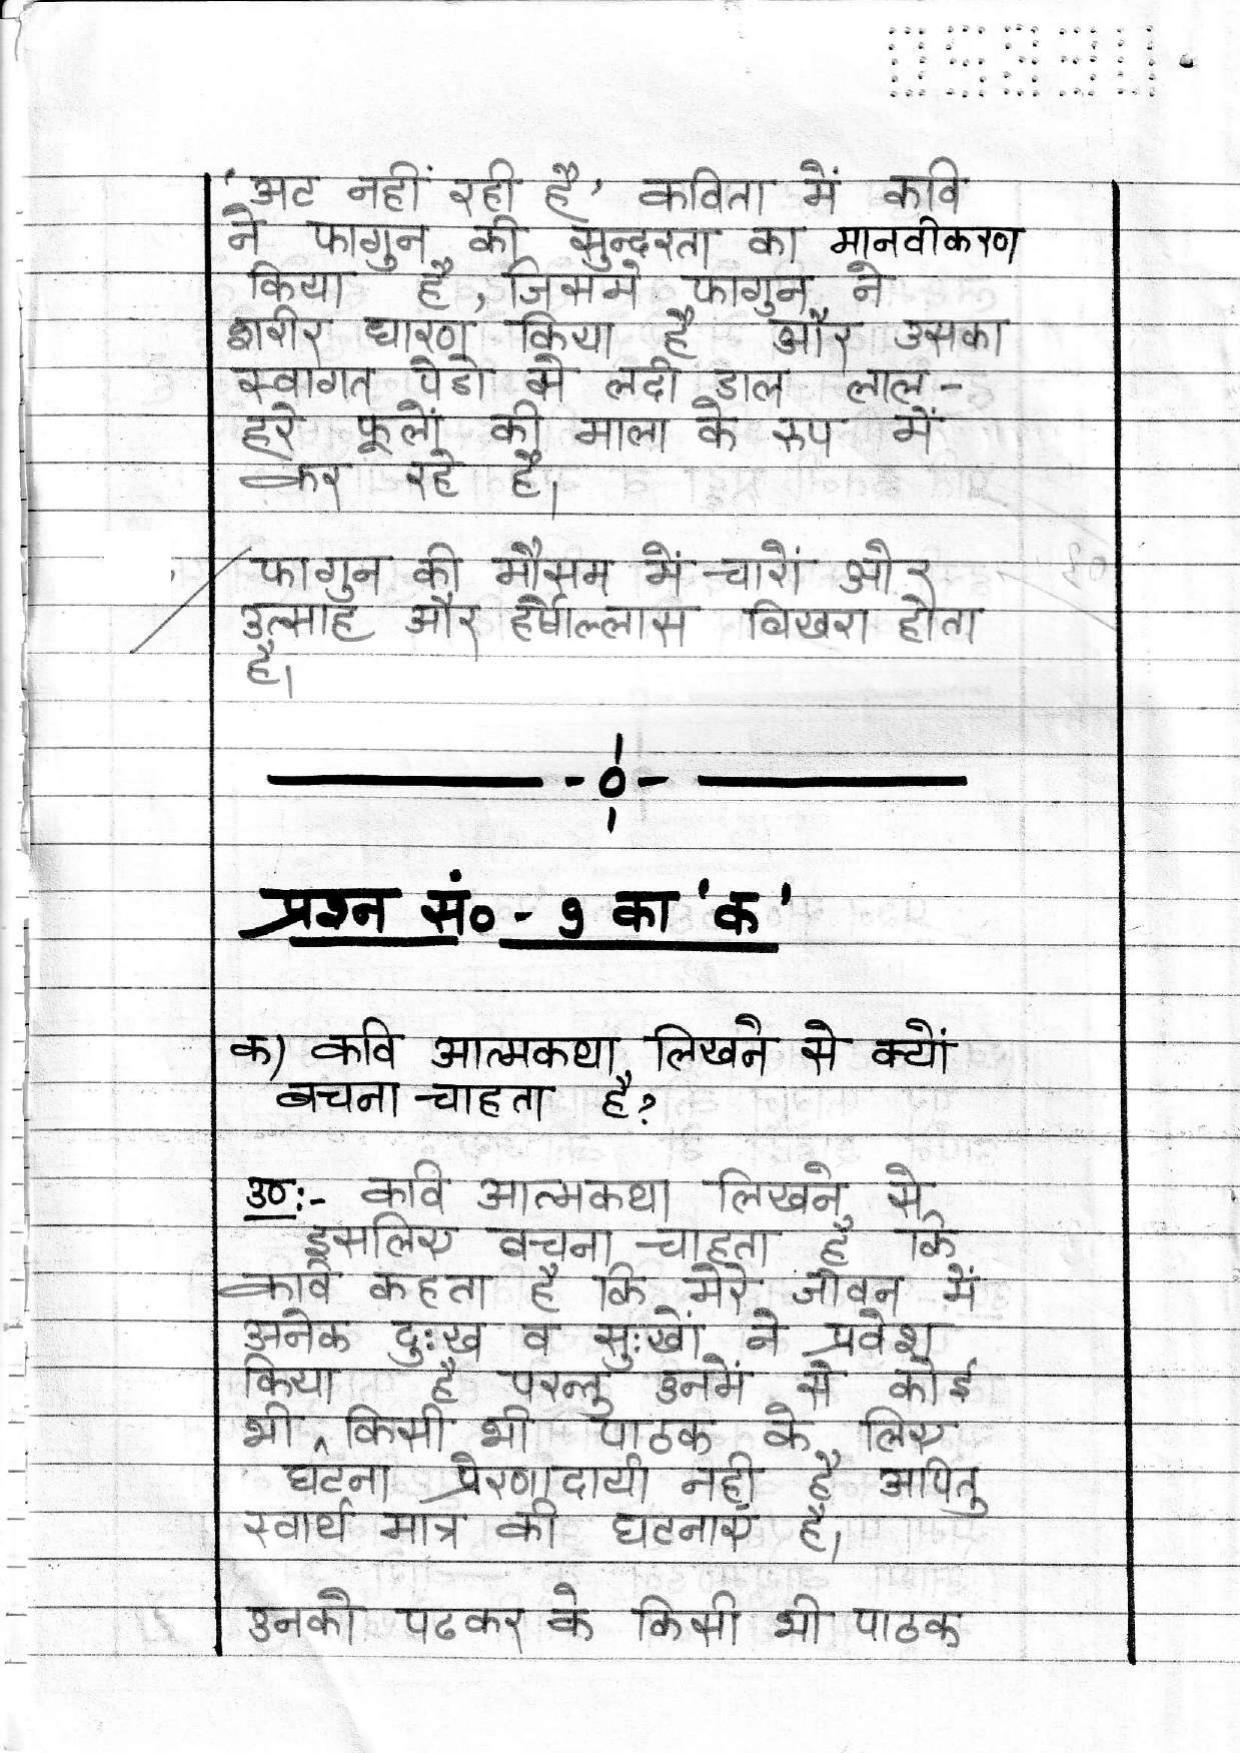 'अट नहीं रही है' कविता में कवि
ने फागुन की सुन्दरता का मानवीकरण
किया है, जिसमे फागुन ने
शरीर धारण किया है और उसका
स्वागत पेडो से लदी डाल लाल-
हरे फूलों की माला के रुप में
कर रहे है।
फागुन की मौसम में चारों ओर
उत्साह और हर्षोल्लास बिखरा होता
है।
-०-
प्रश्न सं० - 9 का 'क'
क) कवि आत्मकथा लिखने से क्यों
बचना चाहता है?
उ०:- कवि आत्मकथा लिखने से
इसलिए बचना चाहता है कि
कवि कहता है कि मेरे जीवन में
अनेक दुःख व सुःखों ने प्रवेश
किया है परन्तु उनमें से कोई
भी किसी भी पाठक के लिए
घटना प्रेरणादायी नही है अपितु
स्वार्थ मात्र की घटनाएं है।
उनको पढकर के किसी भी पाठक